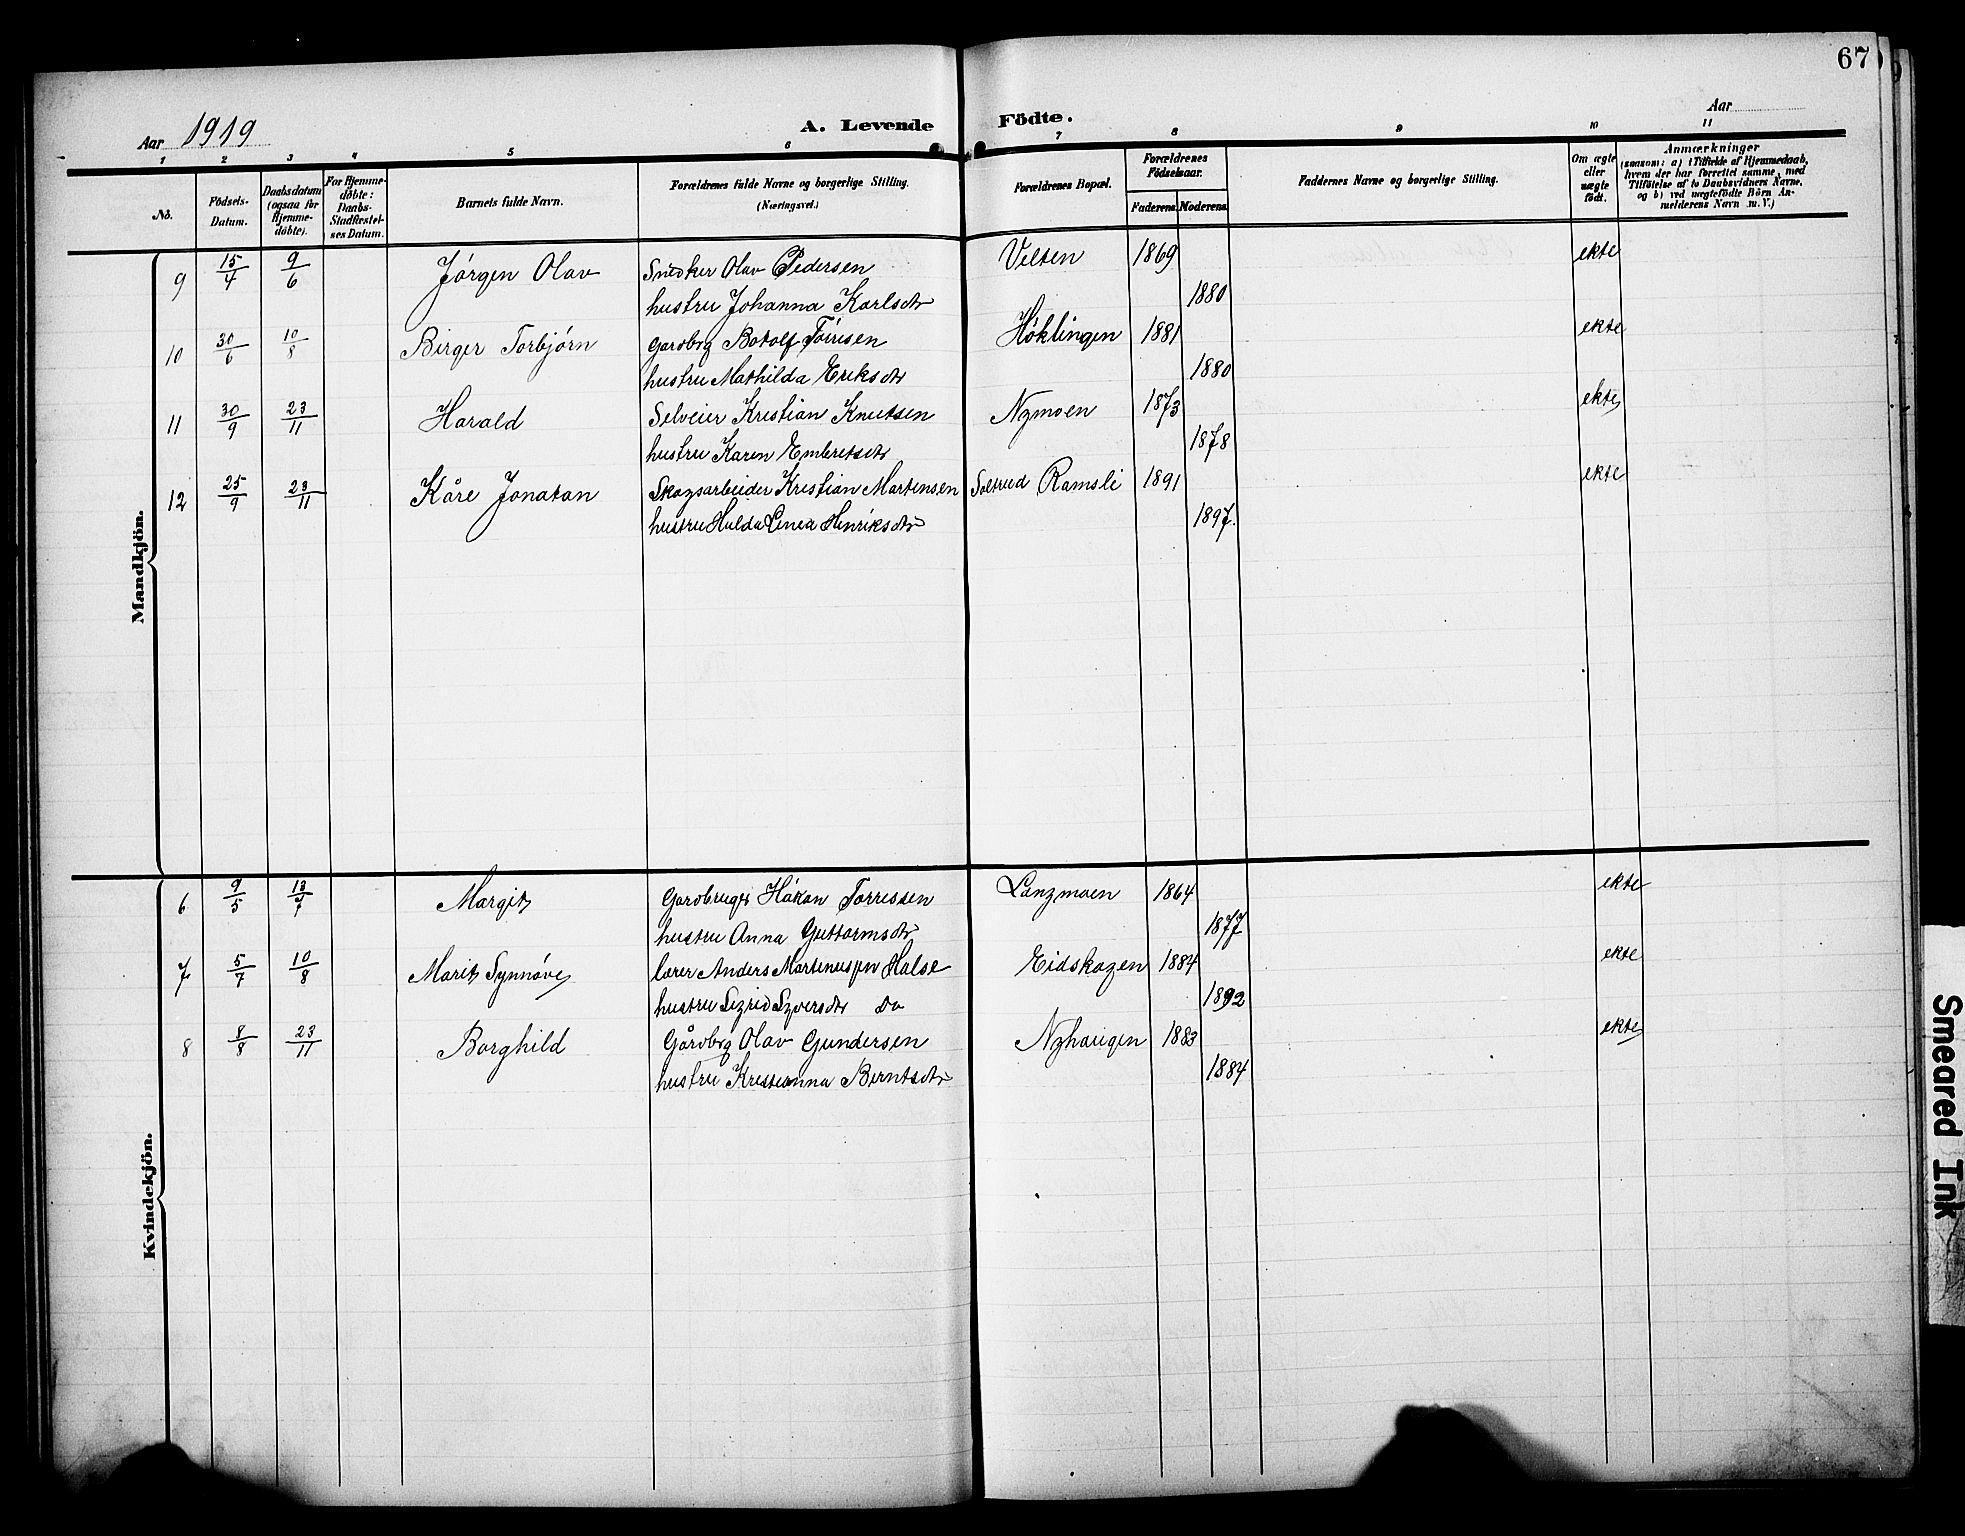 67
Aar 1919
A. Levende Födte.
Aar
1 2 3 4 5 6 7 8 9 10 11
No.
Födsels-Datum.
Daabsdatum (ogsaa for Hjemme-döbte).
For Hjemme-döbte: Daabs-Stadfæstel-ses Datum.
Barnets fulde Navn.
Forældrenes fulde Navne og borgerlige Stilling. (Næringsvei.)
Forældrenes Bopæl.
Forældrenes Födselsaar.
Faderens. Moderens.
Faddernes Navne og borgerlige Stilling.
Om ægte eller uægte födt.
Anmærkninger
(saasom: a) i Tilfælde af Hjemmedaab,
hvem der har forrettet samme, med
Tilföielse af to Daabsvidners Navne,
og b) ved uægtefödte Börn An-
melderens Navn m. V.)
Mandkjön.
9 15/4 9/6 Jørgen Olav Snedker Olav Pedersen Velten 1869 ekte
hustru Johanna Karlsdtr 1880
10 30/6 10/8 Birger Torbjørn Gardbrg Botolf Toresen Høklingen 1881 ekte
hustru Mathilda Eriksdtr 1880
11 30/9 23/11 Harald Selveier Kristian Knutsen Nymoen 1873 ekte
hustru Karen Embretsdtr 1878
12 25/9 23/11 Kåre Jonatan Skogsarbeider Kristian Martensen Ramsli 1891 ekte
hustru Hulda Linea Henriksdtr 1897.
Kvindekjön.
6 9/5 13/7 Margit Gardbruger Håkon Torressen Langmoen 1864 ekte
hustru Anna Guttormsdtr 1877
7 5/7 10/8 Marit Synnøve lærer Anders Martinussen Halse Eidskogen 1884 ekte
hustru Sigrid Syversdtr Do 1892
8 8/8 23/11 Borghild Gårdbrg Olav Gundersen Nyhaugen 1883 ekte
hustru Kristianna Berntsdtr 1884
Smeared Ink